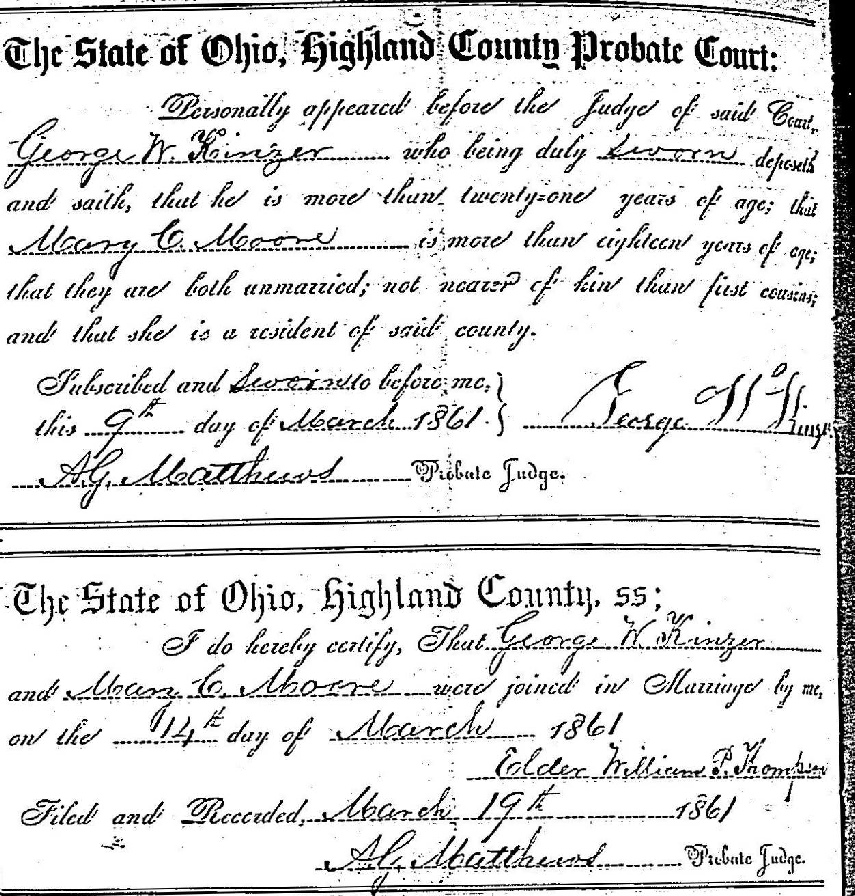 The State of Ohio, Highland County Probate Court:
Personally appeared before the Judge of said Court,
George W. Kinzer who being duly sworn deposeth
and saith, that he is more than twenty-one years of age; that
Mary C. Moore is more than eighteen years of age;
that they are both unmarried; not nearer of kin than first cousins;
and that she is a resident of said county.
Subscribed and sworn to before me,
this 9th day of March 1861.
George W Kinzer
A.G. Matthews Probate Judge.
The State of Ohio, Highland County, ss;
I do hereby certify, That George W. Kinzer
and Mary C. Moore were joined in Marriage by me,
on the 14th day of March 1861
Elder William P. Thompson
Filed and Recorded, March 19th 1861
A.G. Matthews Probate Judge.